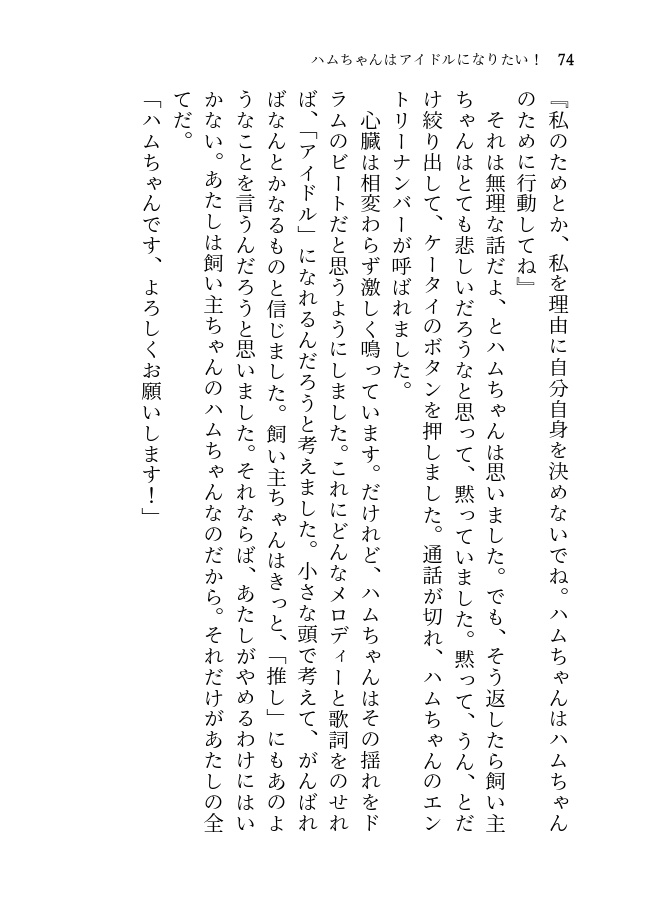 ハムちゃんはアイドルになりたい！ 74
『私のためとか、私を理由に自分自身を決めないでね。ハムちゃんはハムちゃん
のために行動してね』
　それは無理な話だよ、とハムちゃんは思いました。でも、そう返したら飼い主
ちゃんはとても悲しいだろうなと思って、黙っていました。黙って、うん、とだ
け絞り出して、ケータイのボタンを押しました。通話が切れ、ハムちゃんのエン
トリーナンバーが呼ばれました。
　心臓は相変わらず激しく鳴っています。だけれど、ハムちゃんはその揺れをド
ラムのビートだと思うようにしました。これにどんなメロディーと歌詞をのせれ
ば、「アイドル」になれるんだろうと考えました。小さな頭で考えて、がんばれ
ばなんとかなるものと信じました。飼い主ちゃんはきっと、「推し」にもあのよ
うなことを言うんだろうと思いました。それならば、あたしがやめるわけにはい
かない。あたしは飼い主ちゃんのハムちゃんなのだから。それだけがあたしの全
てだ。
「ハムちゃんです、よろしくお願いします！」